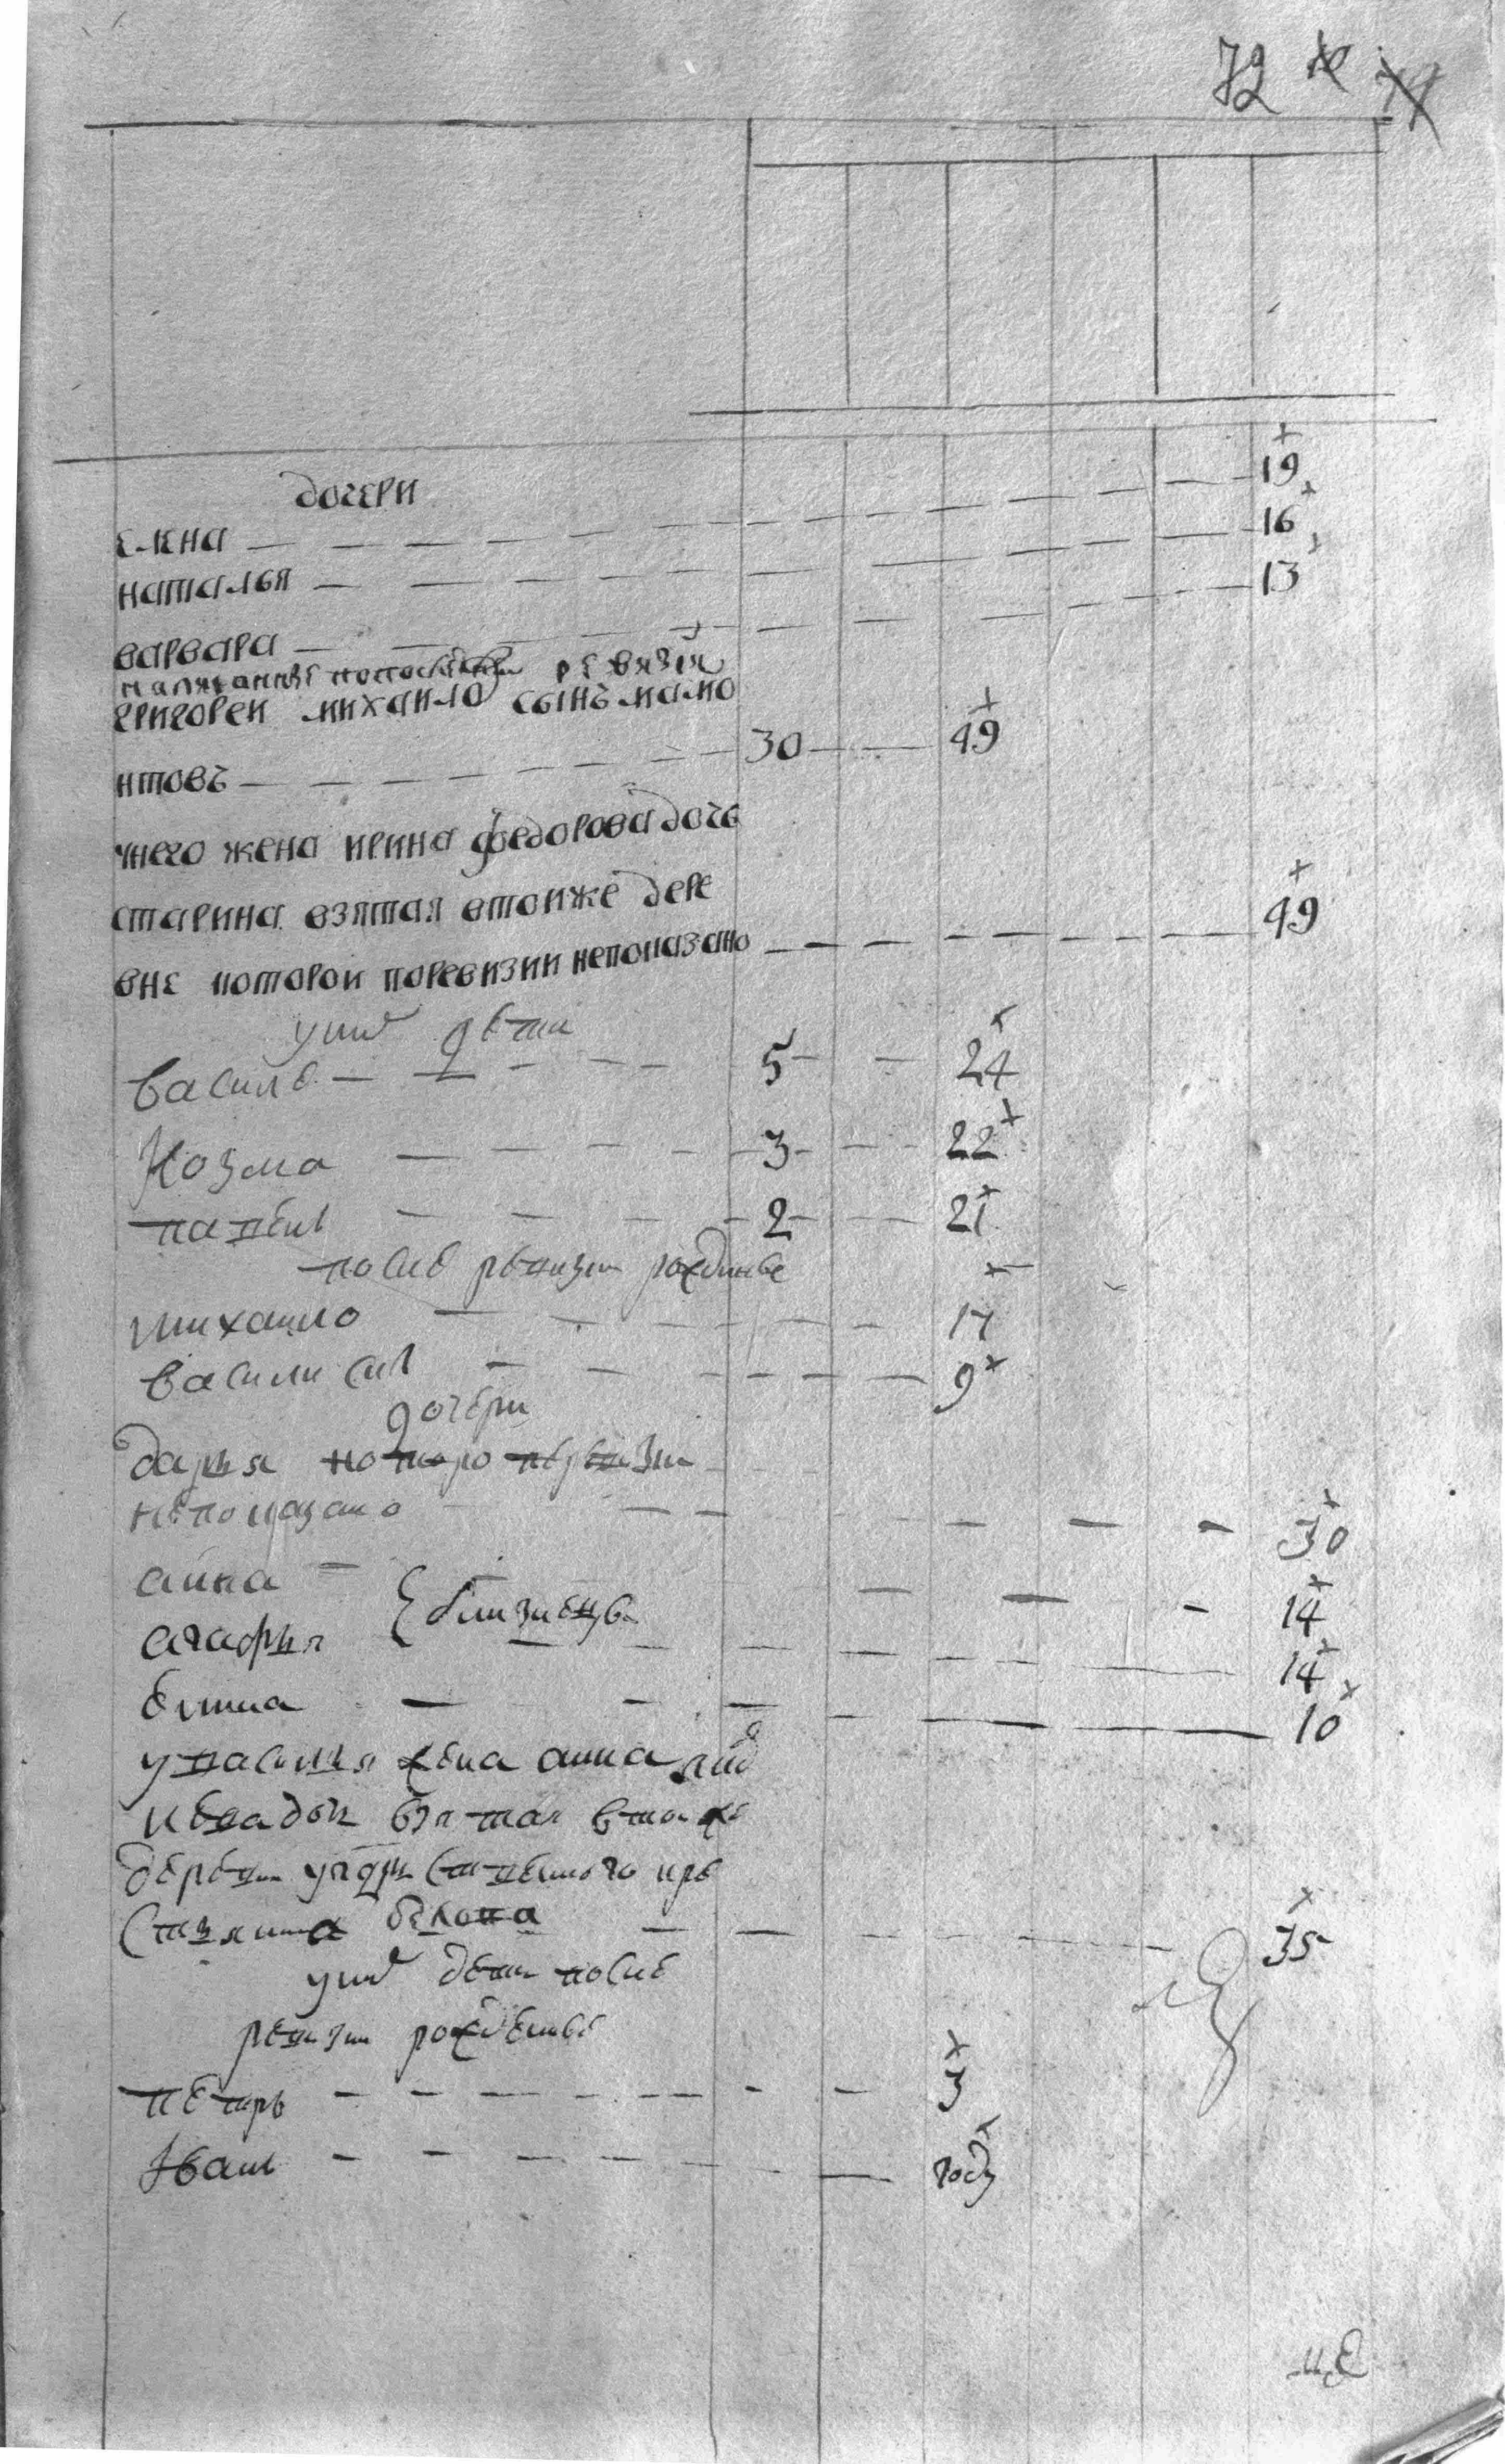 72
дочери
елена 19
наталья 16
варвара 13
написанные попоследней ревизiи
григореи михаило сынъ мамо
нтовъ 30 49
унего жена ирина федорова дочь
старина взятая втоиже дере
вне которои поревизии непоказано 49
уних дети
василеи 5 24
Козма 3 22
павелъ 2 21
после ревизии рожденые
михаило 17
василисилъ 9
дочери
дарья которо поревизии
непоказано 30
анна 14
агафья близнецы 14
елена 10
увасилья жена анна
иванадочь взятая втоиже
деревни удворственного кре
стьянина 35
уних дети после
ревизии рожденые
петръ 3
Иванъ году